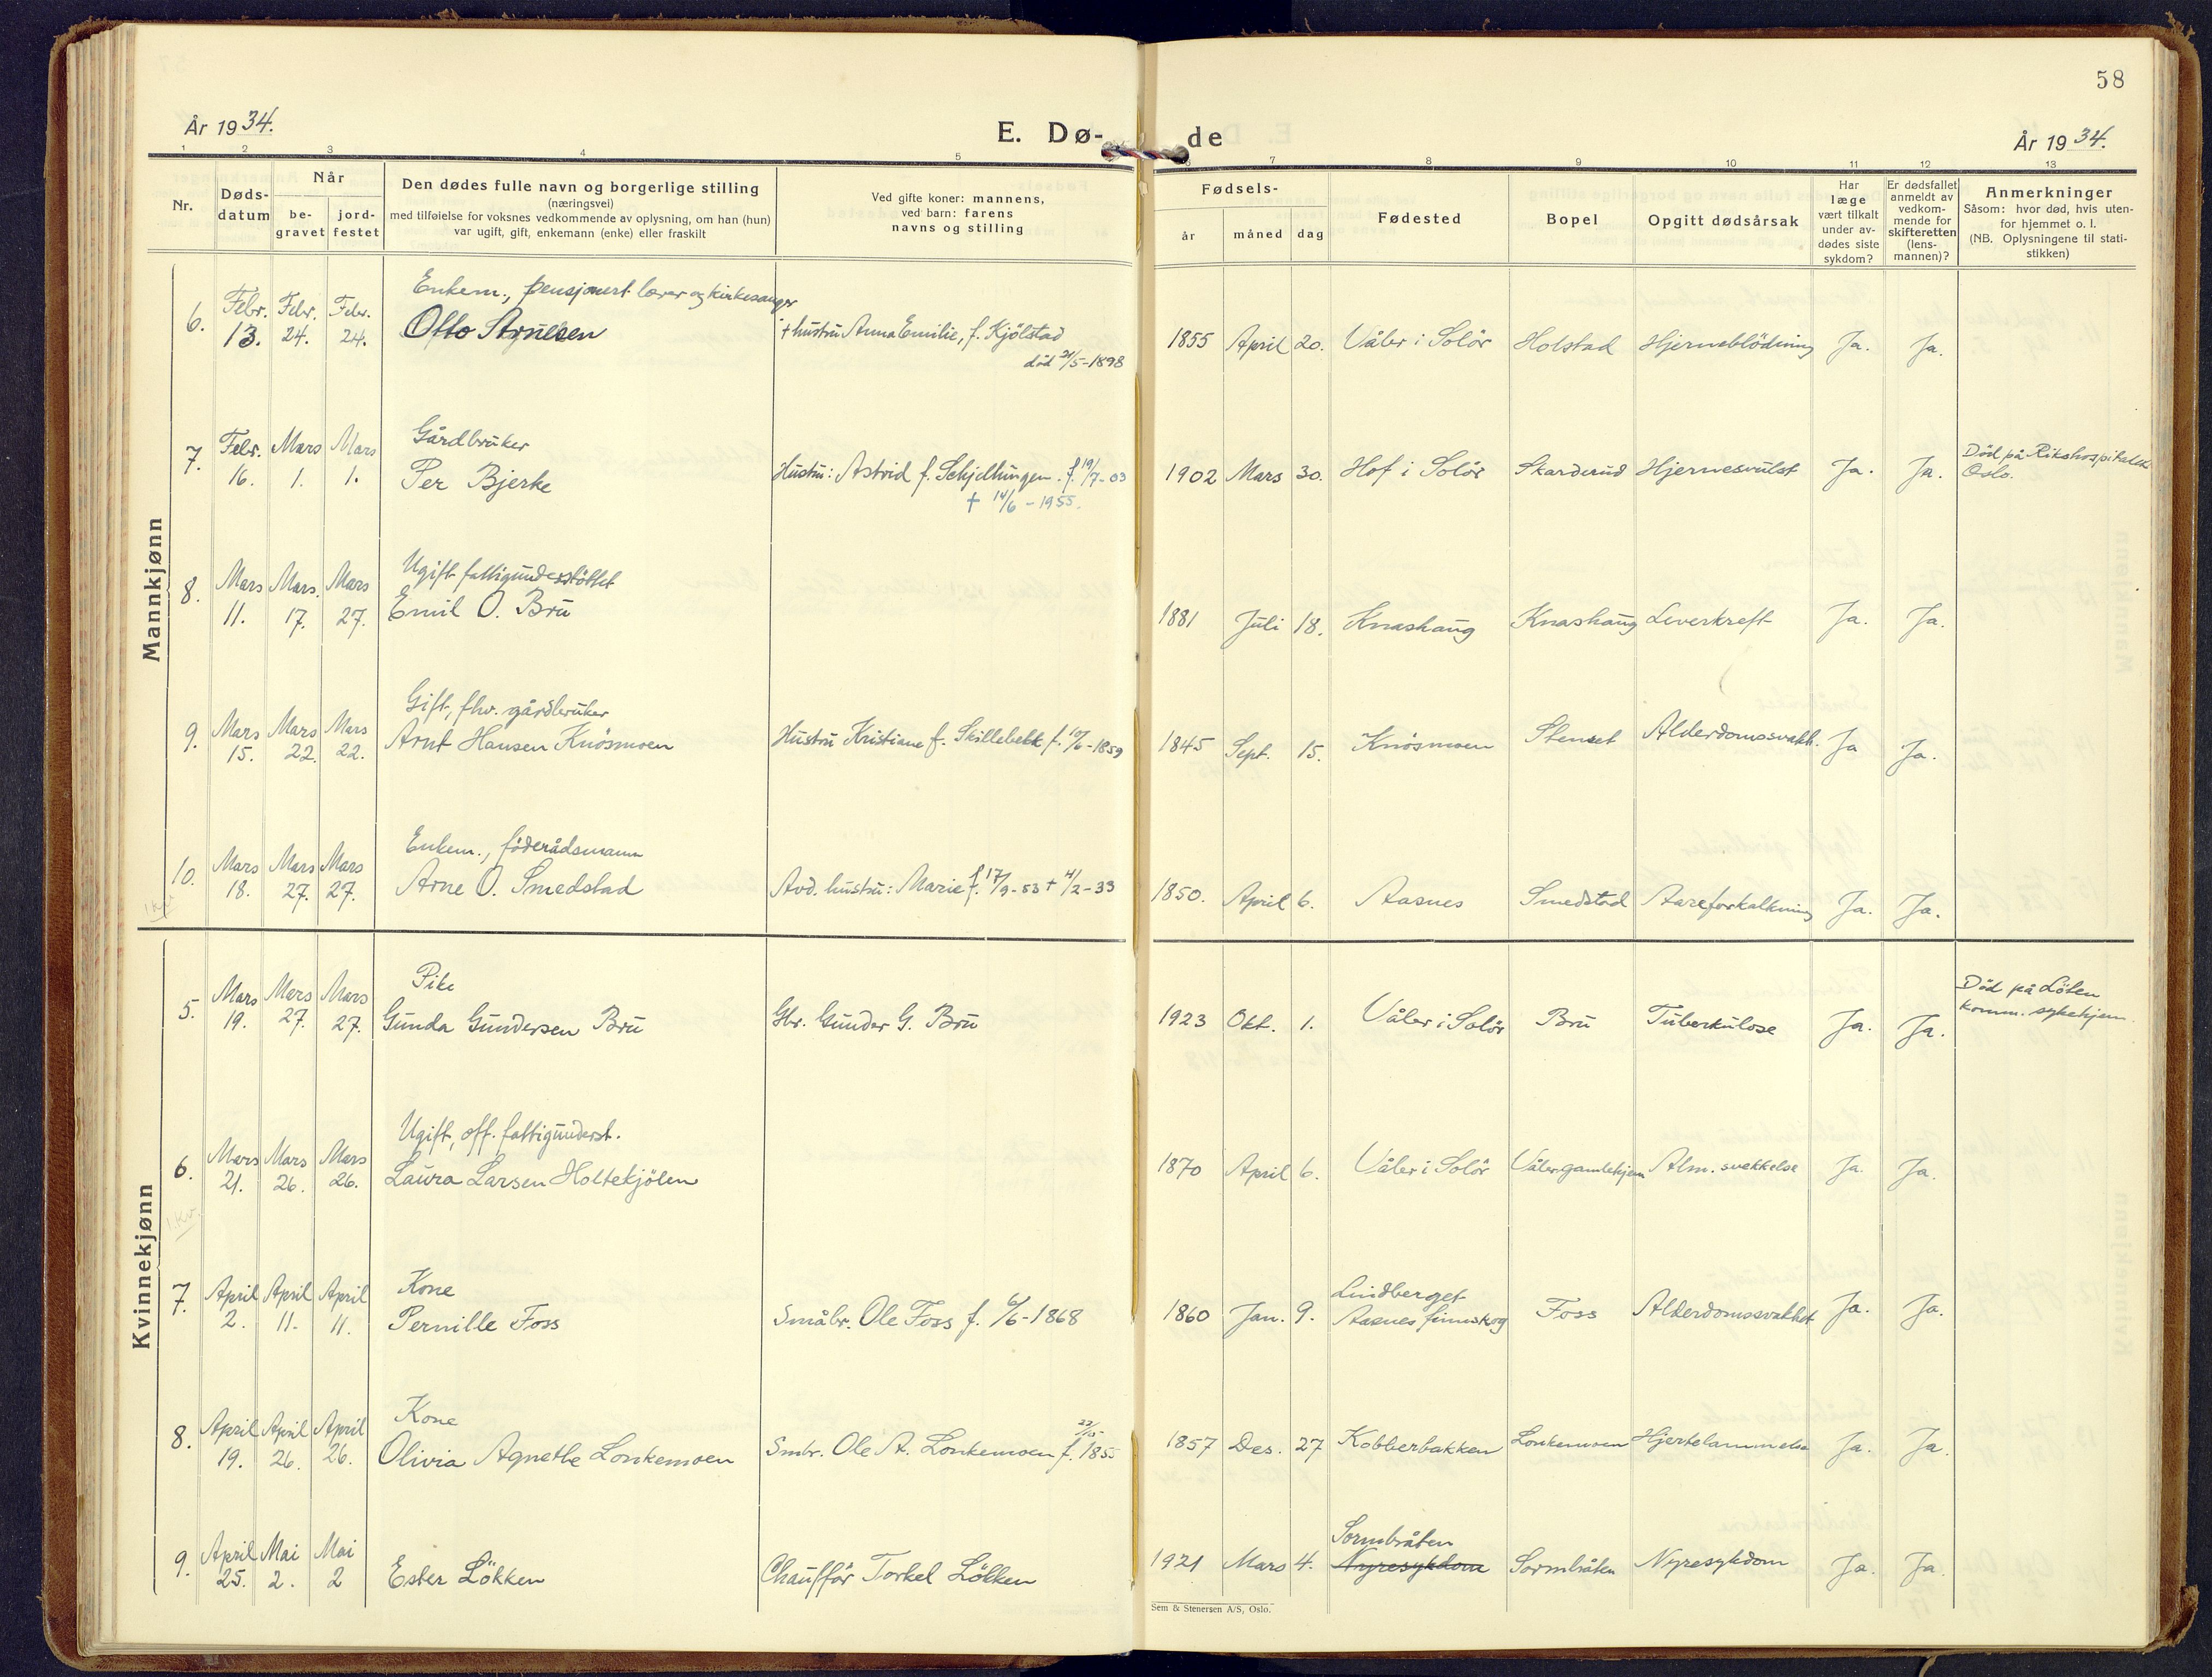 58
År 1934.
E. Dø-
de
År 1934.
1 2 3 4 5 6 7 8 9 10 11 12 13
Nr.
Døds-
datum
Når
be-
gravet
jord-
festet
Den dødes fulle navn og borgerlige stilling
(næringsvei)
med tilføielse for voksnes vedkommende av oplysning, om han (hun)
var ugift, gift, enkemann (enke) eller fraskilt
Ved gifte koner: mannens,
ved barn: farens
navns og stilling
Fødsels-
år
måned
dag
Fødested
Bopel
Opgitt dødsårsak
Har
læge
vært tilkalt
under av-
dødes siste
sykdom?
Er dødsfallet
anmeldt av
vedkom-
mende for
skifteretten
(lens-
mannen)?
Anmerkninger
Såsom: hvor død, hvis uten-
for hjemmet o. l.
(NB. Oplysningene til stati-
stikken)
Mannkjønn
Enkem., pensjonert lærer og kirkesanger
6. Febr. 13. Febr. 24. Febr. 24. Otto + hustru Anna Emilie, f. Kjölstad
död 21/5-1898
1855 April 20. Våler i Solör Holstad Hjerneblödning Ja. Ja.
Gårdbruker
7. Febr. 16. Mars 1. Mars 1. Per Bjerke Hustru: Astrid f. Schjellungen. f. 19/7-03
+ 14/6-1955.
1902 Mars 30. Hof i Solör Skarderud Hjernesvulst Ja. Ja. Död på Rikshospitalet
Oslo.
Ugift fattigunderstöttet
8. Mars 11. Mars. 17. Mars 27. Emil O. Brŭ
1881 Juli 18. Knashaug Knashaug Leverkreft Ja. Ja.
Gift, fhv. gårdbruker
9. Mars 15. Mars 22. Mars 22. Arnt Hansen Knösmoen Hustru Kristiane f. Skillebekk f. 10/6-1859
1845 Sept. 15. Knösmoen Stenset Alderdomssvakh. Ja Ja.
Enkem., föderådsmann
10. Mars 18. Mars 27. Mars 27. Arne O. Smedstad Avd. hustru: Marie f. 17/9-53 + 4/2-33
1850. April 6. Aasnes Smedstad Aareforkalkning Ja. Ja.
Kvinnekjønn
Pike
5. Mars 19. Mars 27. Mars 27. Gunda Gundersen Brŭ Gbr. Gunder G. Brŭ
1923 Okt. 1. Våler i Solör Brŭ Tuberkulose Ja. Ja. Död på Löten
komm. sykehjem.
Ugift, off. fattigunderst.
6. Mars 21. Mars 26. Mars 26. Laura Larsen Holtekjölen
1870 April 6. Våler i Solör Våler gamlehjem Alm. svekkelse Ja. Ja.
1. Kv.
Kone
7. April 2. April 11. April 11. Pernille Foss Småbr. Ole Foss f. 6/6-1868
1860 Jan. 9. Lindberget
Aasnes finnskog Foss Alderdomssvakhet Ja. Ja.
Kone
8. April 19. April 26. April 26. Olivia Agnethe Lonkemoen Smbr. Ole A. Lonkemoen f. 1855
1857 Des. 27 Kobberbakken Lonkemoen Hjertelammelse Ja. Ja.
9. April 25. Mai 2. Mai 2 Ester Lökken Chaufför Torkel Lökken
1921 Mars 4. Sormbråten
Nyresykdom Sormbråten Nyresykdom Ja. Ja.
Sem & Stenersen A/S, Oslo.